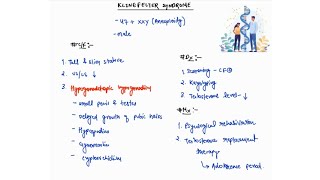 KLINEFELTER SYNDROME
- 47 + XXY (Aneuploidy)
- male
# C/F :-
1. Tall & slim stature
2. US/LS ↓
3. Hypergonadotropic hypogonadism
- small penis & testes
- Delayed growth of pubic hairs
- Hypospadias
- Gynecomastia
- cryptorchidism
# Dx :-
1. Screening -
2. Karyotyping
3. Testosterone level - ↓
# Mx :-
1. Psychological rehabilitation
2. Testosterone replacement therapy
↳ Adolescence period.